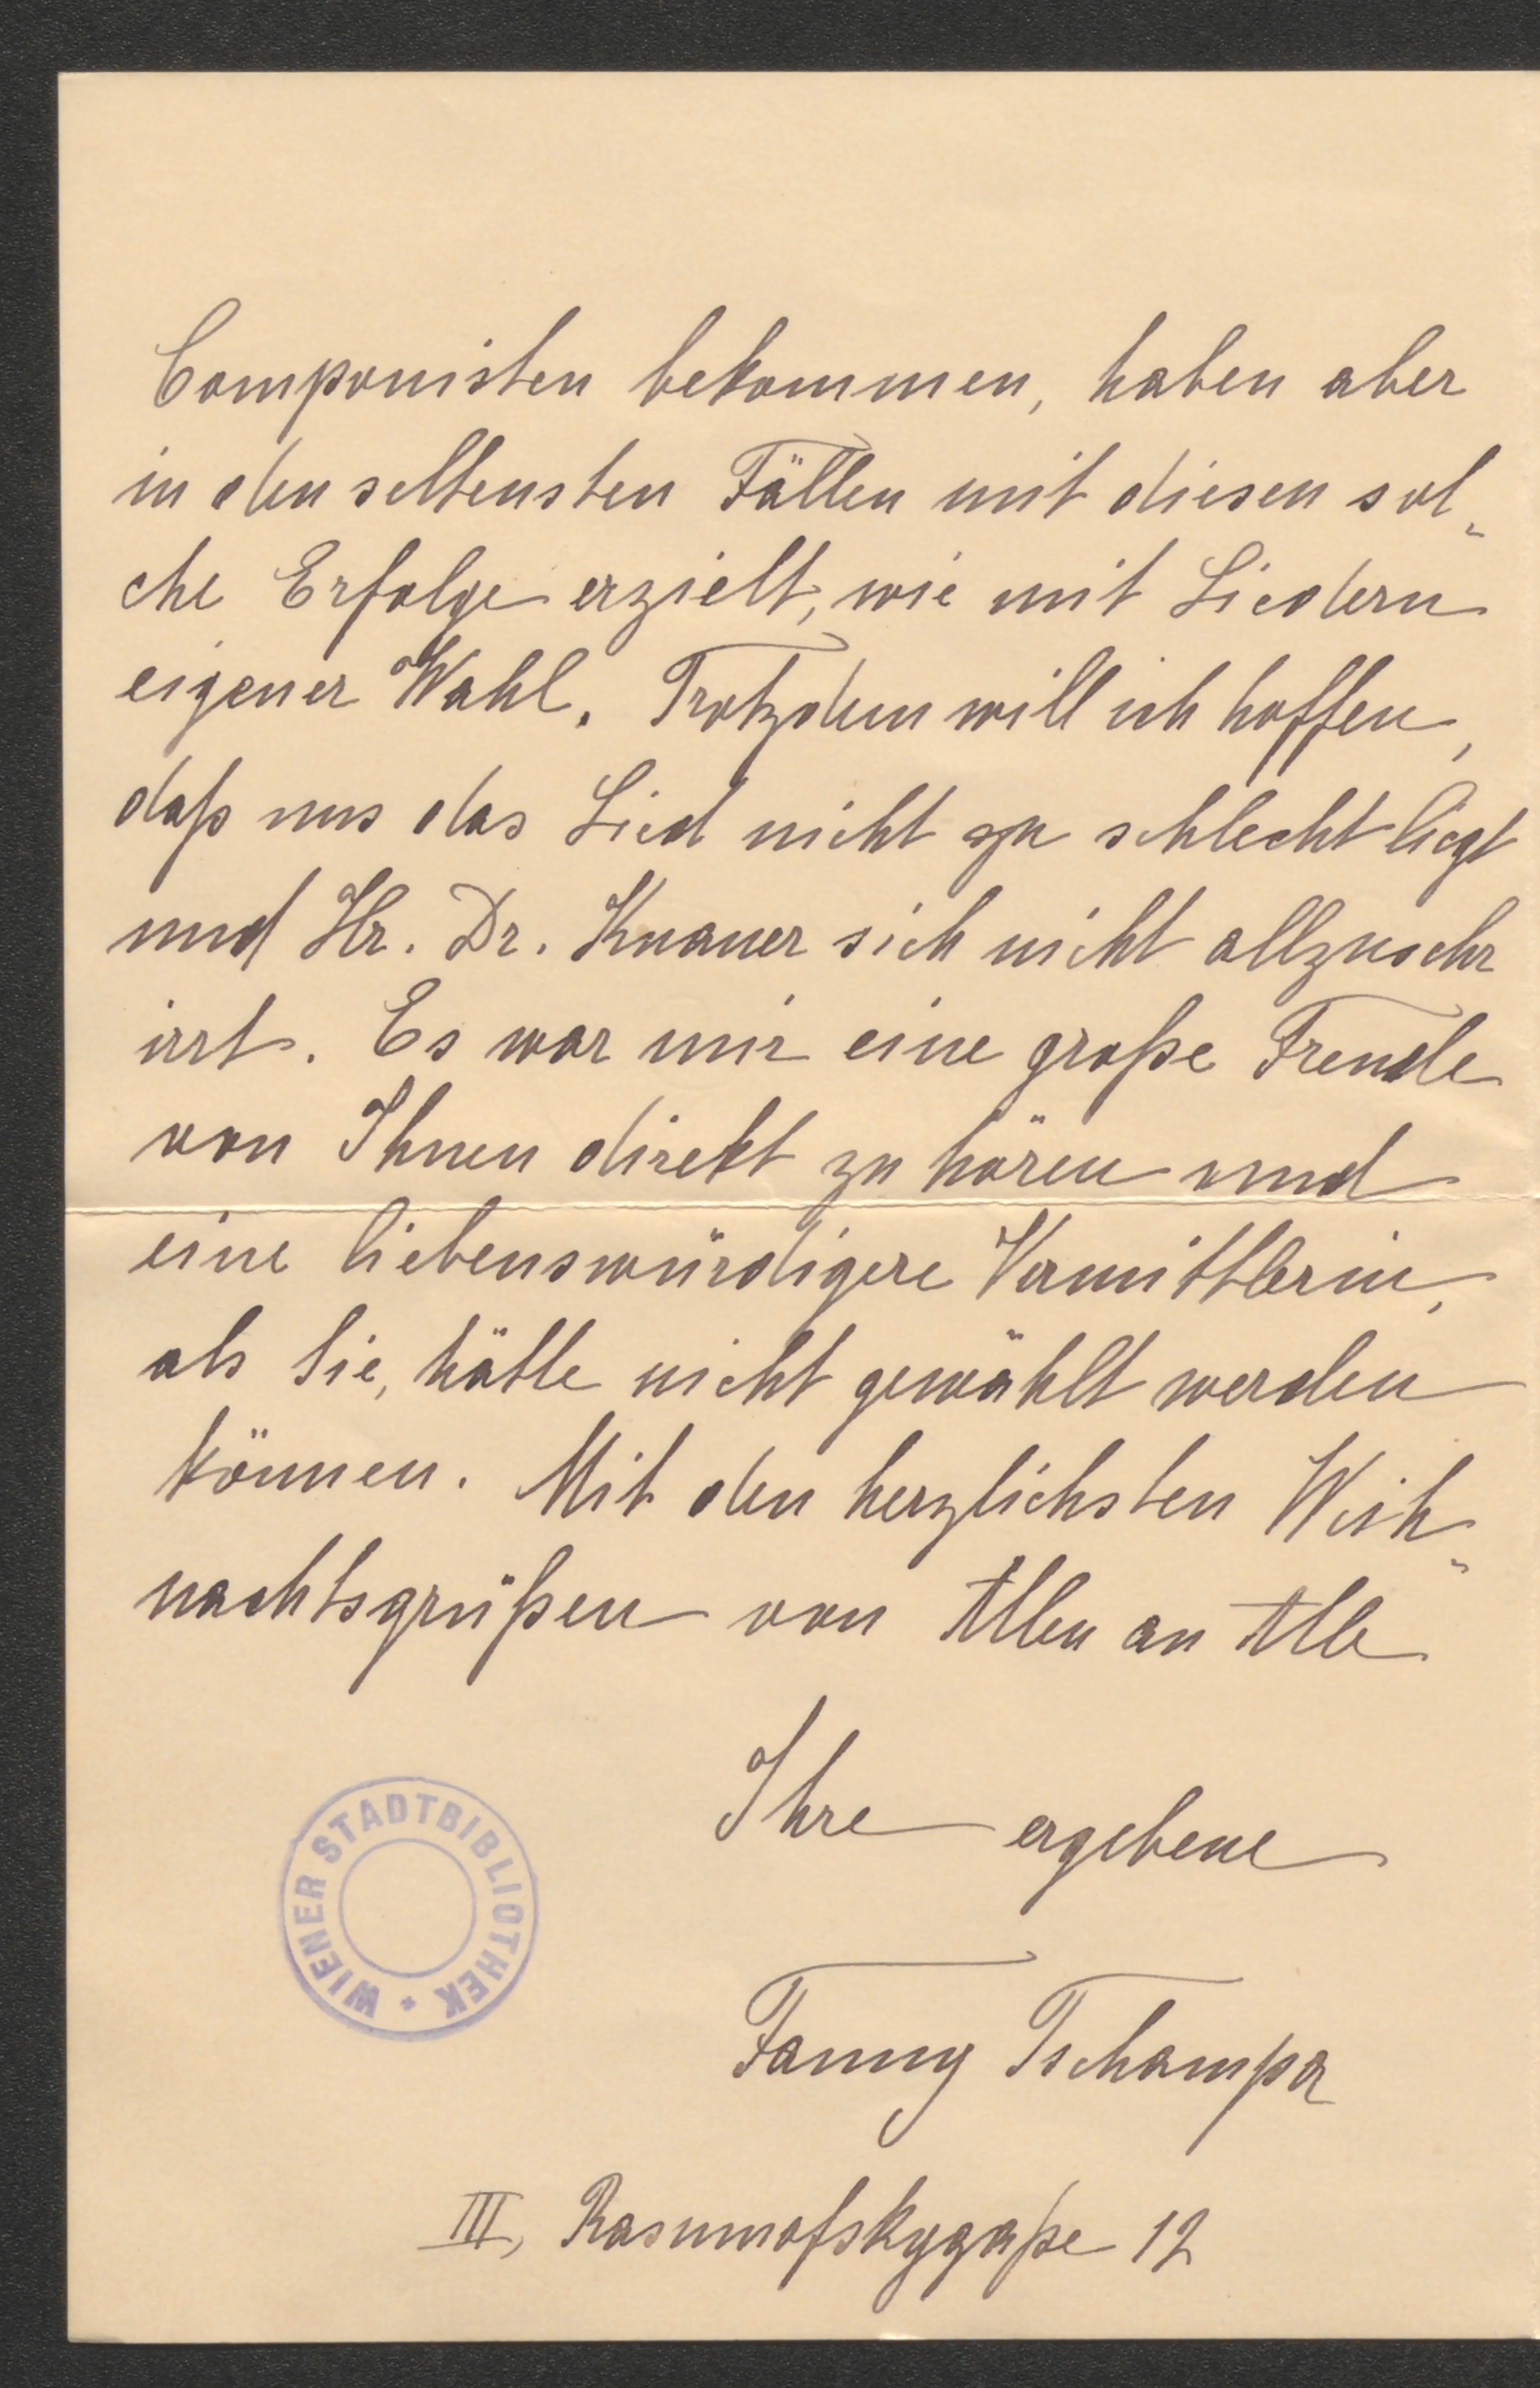 Componisten bekommen, haben aber
in den seltensten Fällen mit diesen sol„
che Erfolge erzielt, wie mit Liedern
eigener Wahl. Trotzdem will ich hoffen,
daß uns das Lied nicht zu schlecht liegt
und Hr. Dr. Knauer sich nicht allzusehr
irrt. Es war mir eine große Freude
von Ihnen direkt zu hören und
eine liebenswürdigere Vermittlerin,
als Sie, hätte nicht gewählt werden
können. Mit den herzlichsten Weih„
nachtsgrüßen von Allen an Alle
Ihre ergebene
WIENER STADTBIBLIOTHEK *
Fanny Tschampa
III, Rasumofskygaße 12